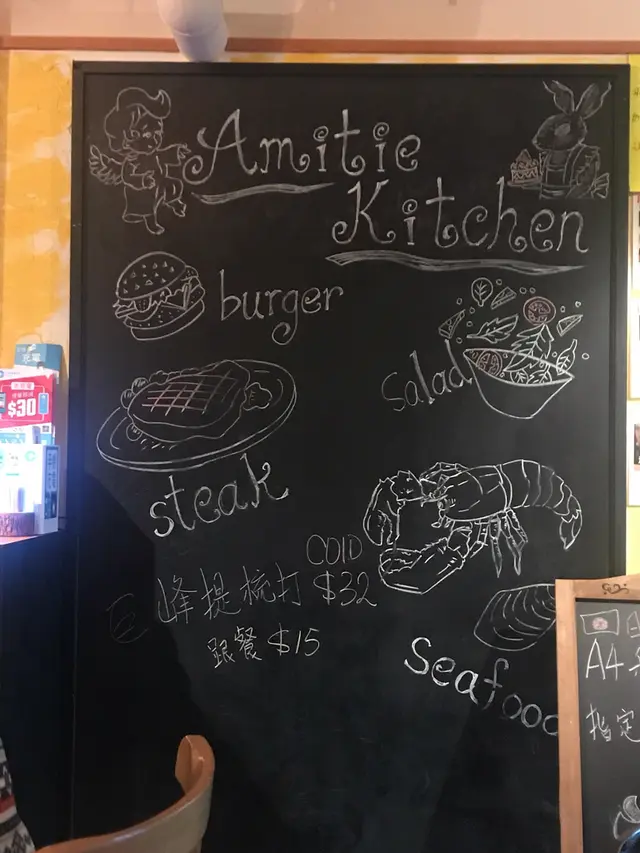 Amitie
Kitchen
burger
salad
steak
COlD
峰提梳打 $32
跟餐 $15
Seafood
$30
A4
指定